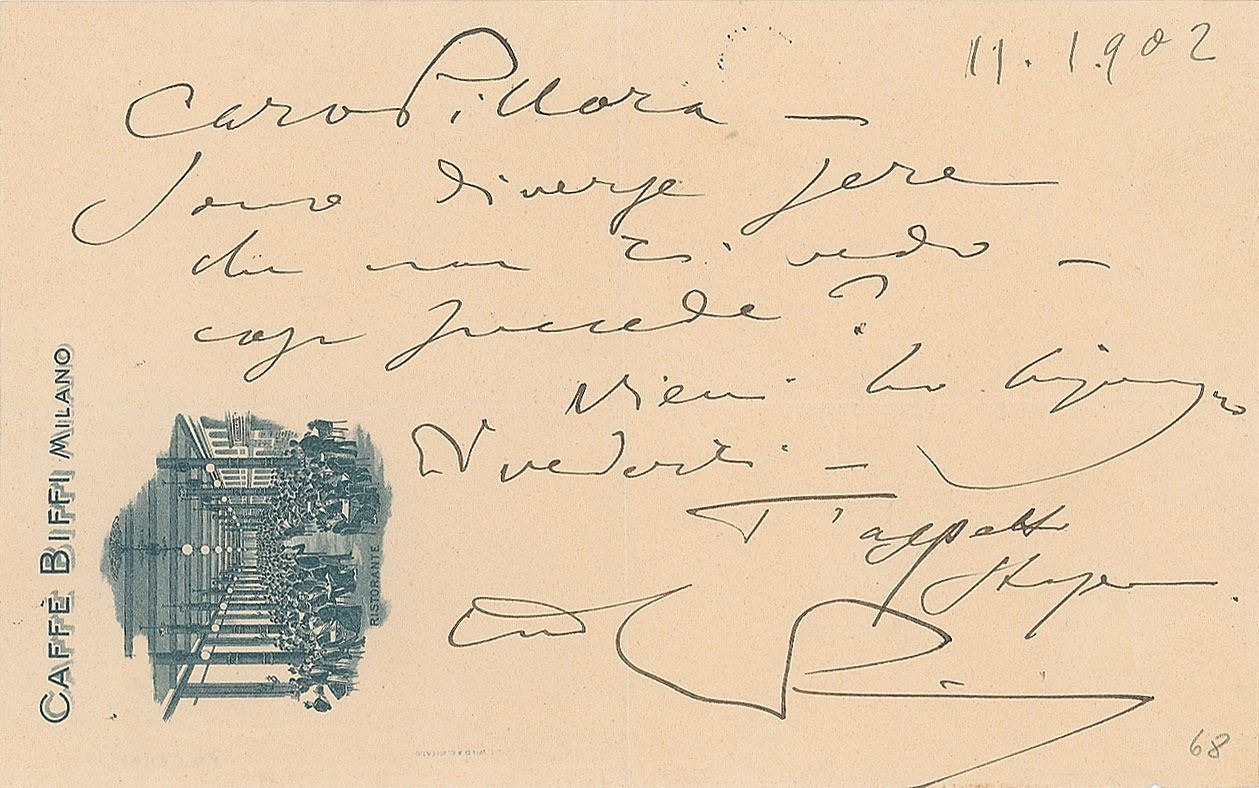 11.1902
Caro Pillora —
Sono diverse sere
che non ti vedo —
cosa succede?
Vieni ho bisogno
di vederti —
T'aspetto
stasera
CAFFÈ BIFFI MILANO
RISTORANTE
68